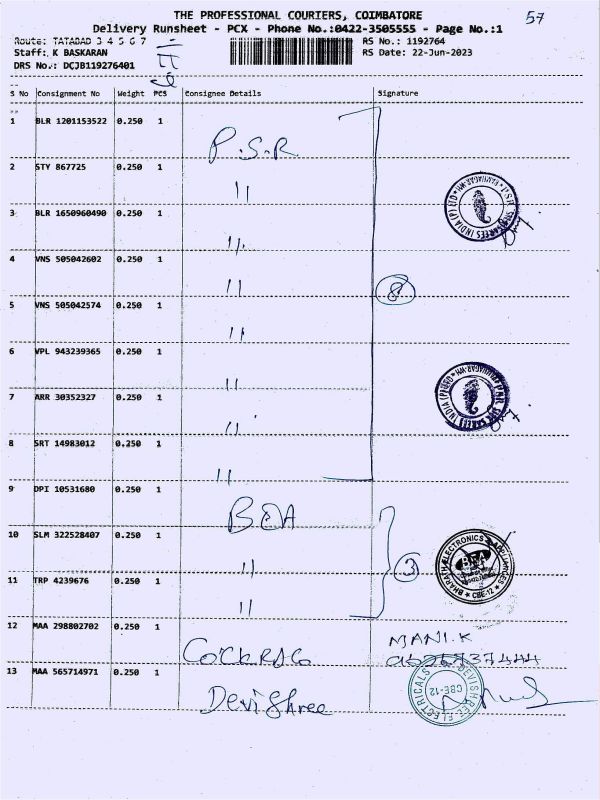 THE PROFESSIONAL COURIERS, COIMBATORE
57
Delivery Runsheet - PCX - Phone No.:0422-3505555 - Page No.:1
Route: TATABAD 3 4 5 6 7
RS No.: 1192764
Staff: K BASKARAN
RS Date: 22-Jun-2023
DRS No.: DCJB119276401
S No Consignment No Weight PCS Consignee Details Signature
1 BLR 1201153522 0.250 1 P.S.R
2 STY 867725 0.250 1 "
3 BLR 1650960490 0.250 1 "
4 VNS 505042602 0.250 1 "
8
5 VNS 505042574 0.250 1 "
6 VPL 943239365 0.250 1 "
7 ARR 30352327 0.250 1 "
8 SRT 14983012 0.250 1 "
9 DPI 10531680 0.250 1 BEA
10 SLM 322528407 0.250 1 "
BHARATH ELECTRONICS & APPLIANCES
BEA
CBE-12
3
11 TRP 4239676 0.250 1 "
12 MAA 298802702 0.250 1
MANI.K
13 MAA 565714971 0.250 1 Devi Shree
DEVISHREE ELECTRICALS
CBE-12